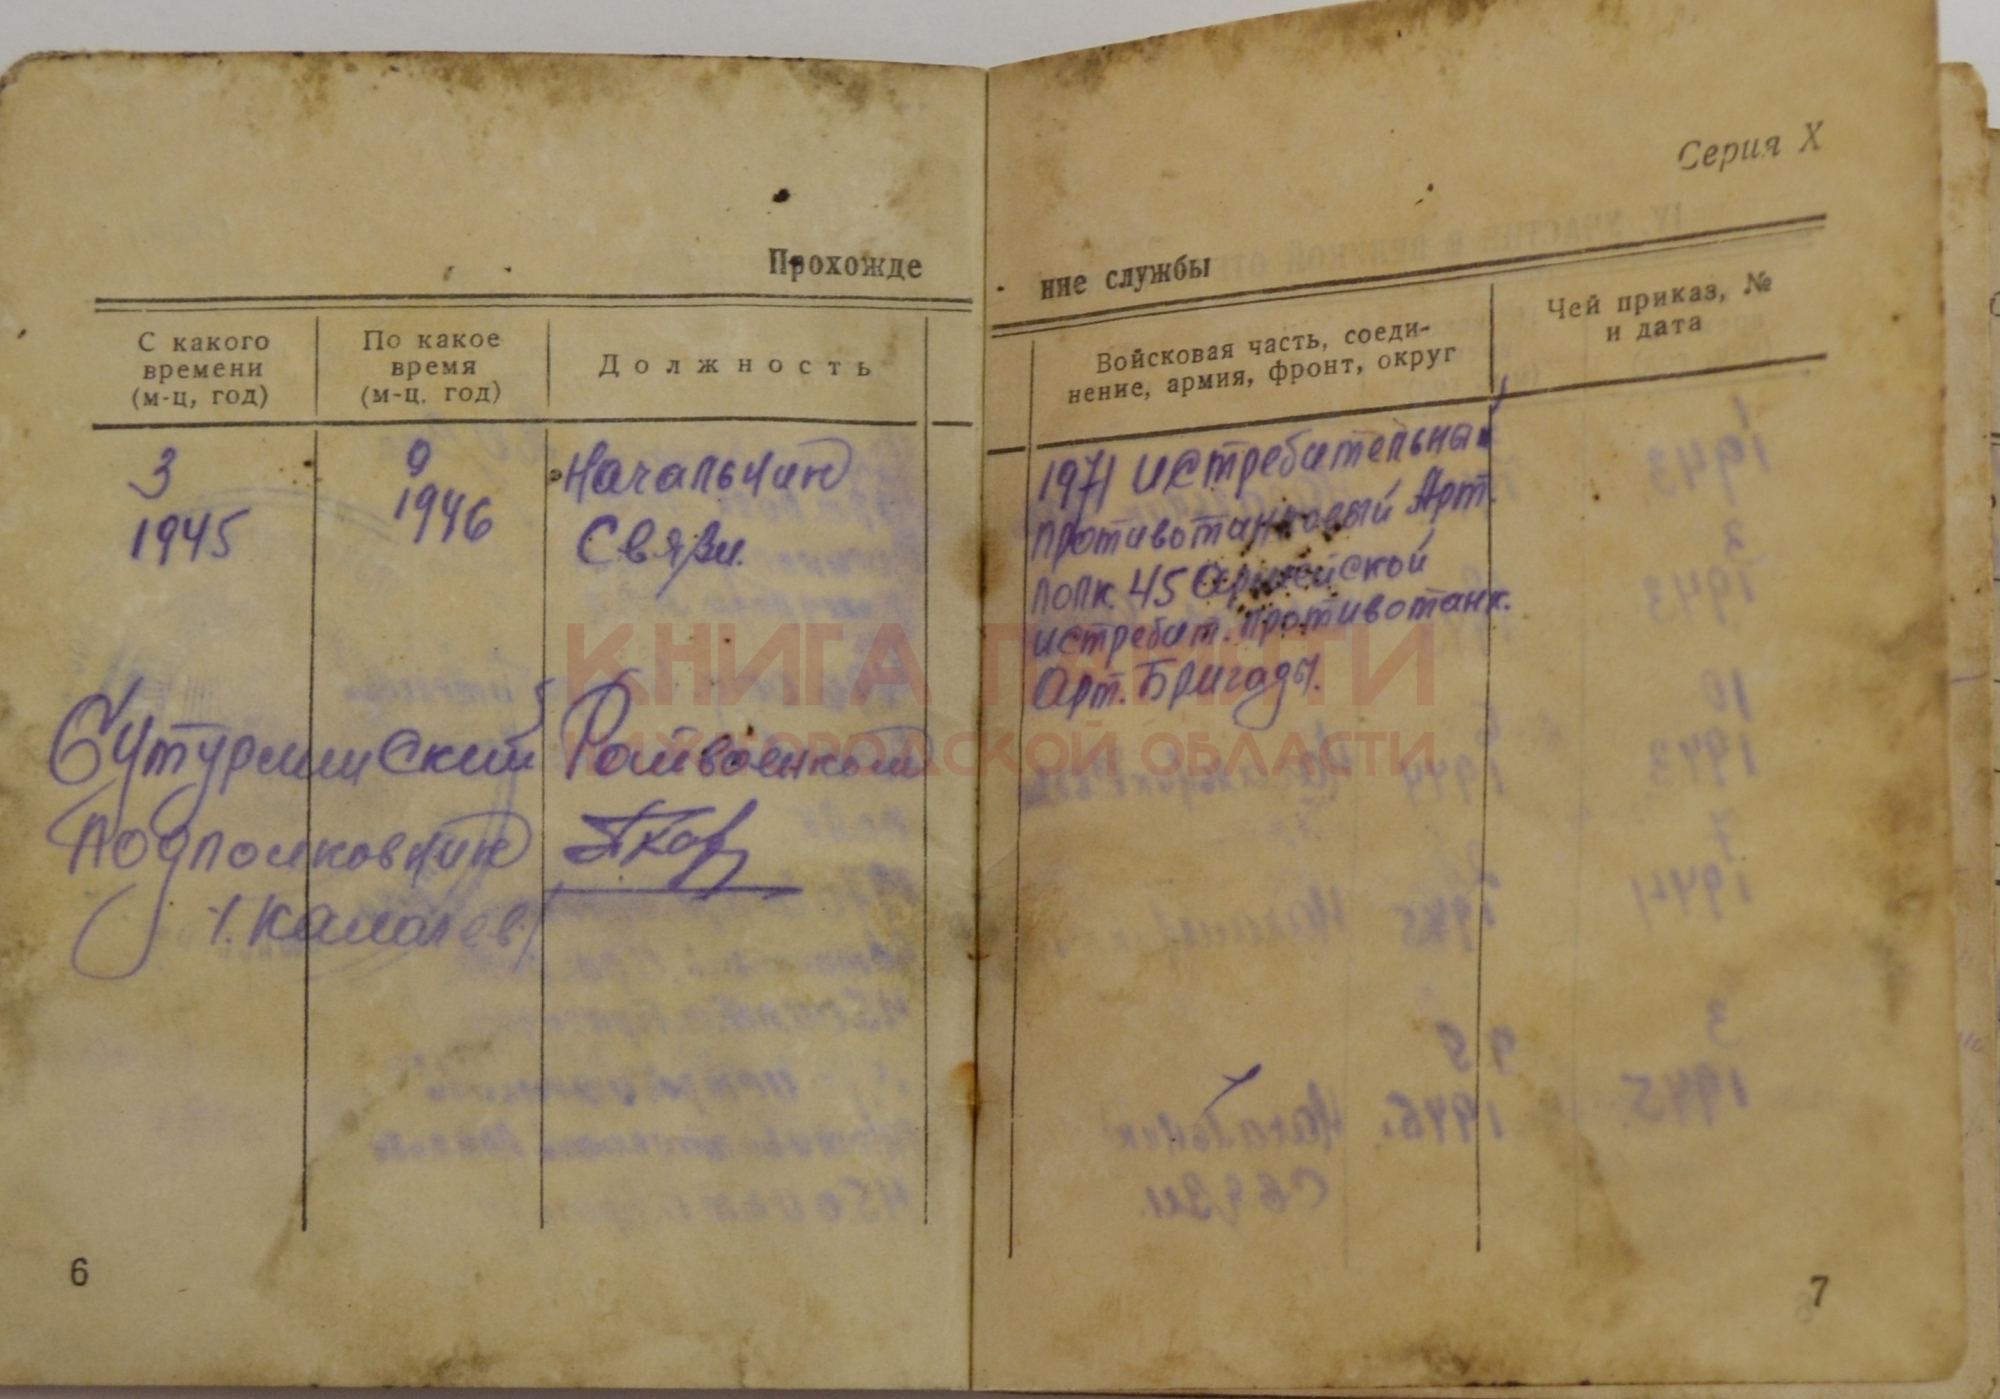 Серия X
Прохожде
ние службы
С какого времени (м-ц, год)
По какое время (м-ц, год)
Должность
Войсковая часть, соеди-
нение, армия, фронт, округ
Чей приказ, №
и дата
3
1945
9
1946
Начальник
Связи.
1971 истребительный
противотанковый Арт.
полк. 45 Армейской
истребит. противотанк.
Арт. Бригады.
Бутурлинский Райвоенком
Подполковник
/. Камалев/
КНИГА ПАМЯТИ
НИЖЕГОРОДСКОЙ ОБЛАСТИ
6
7